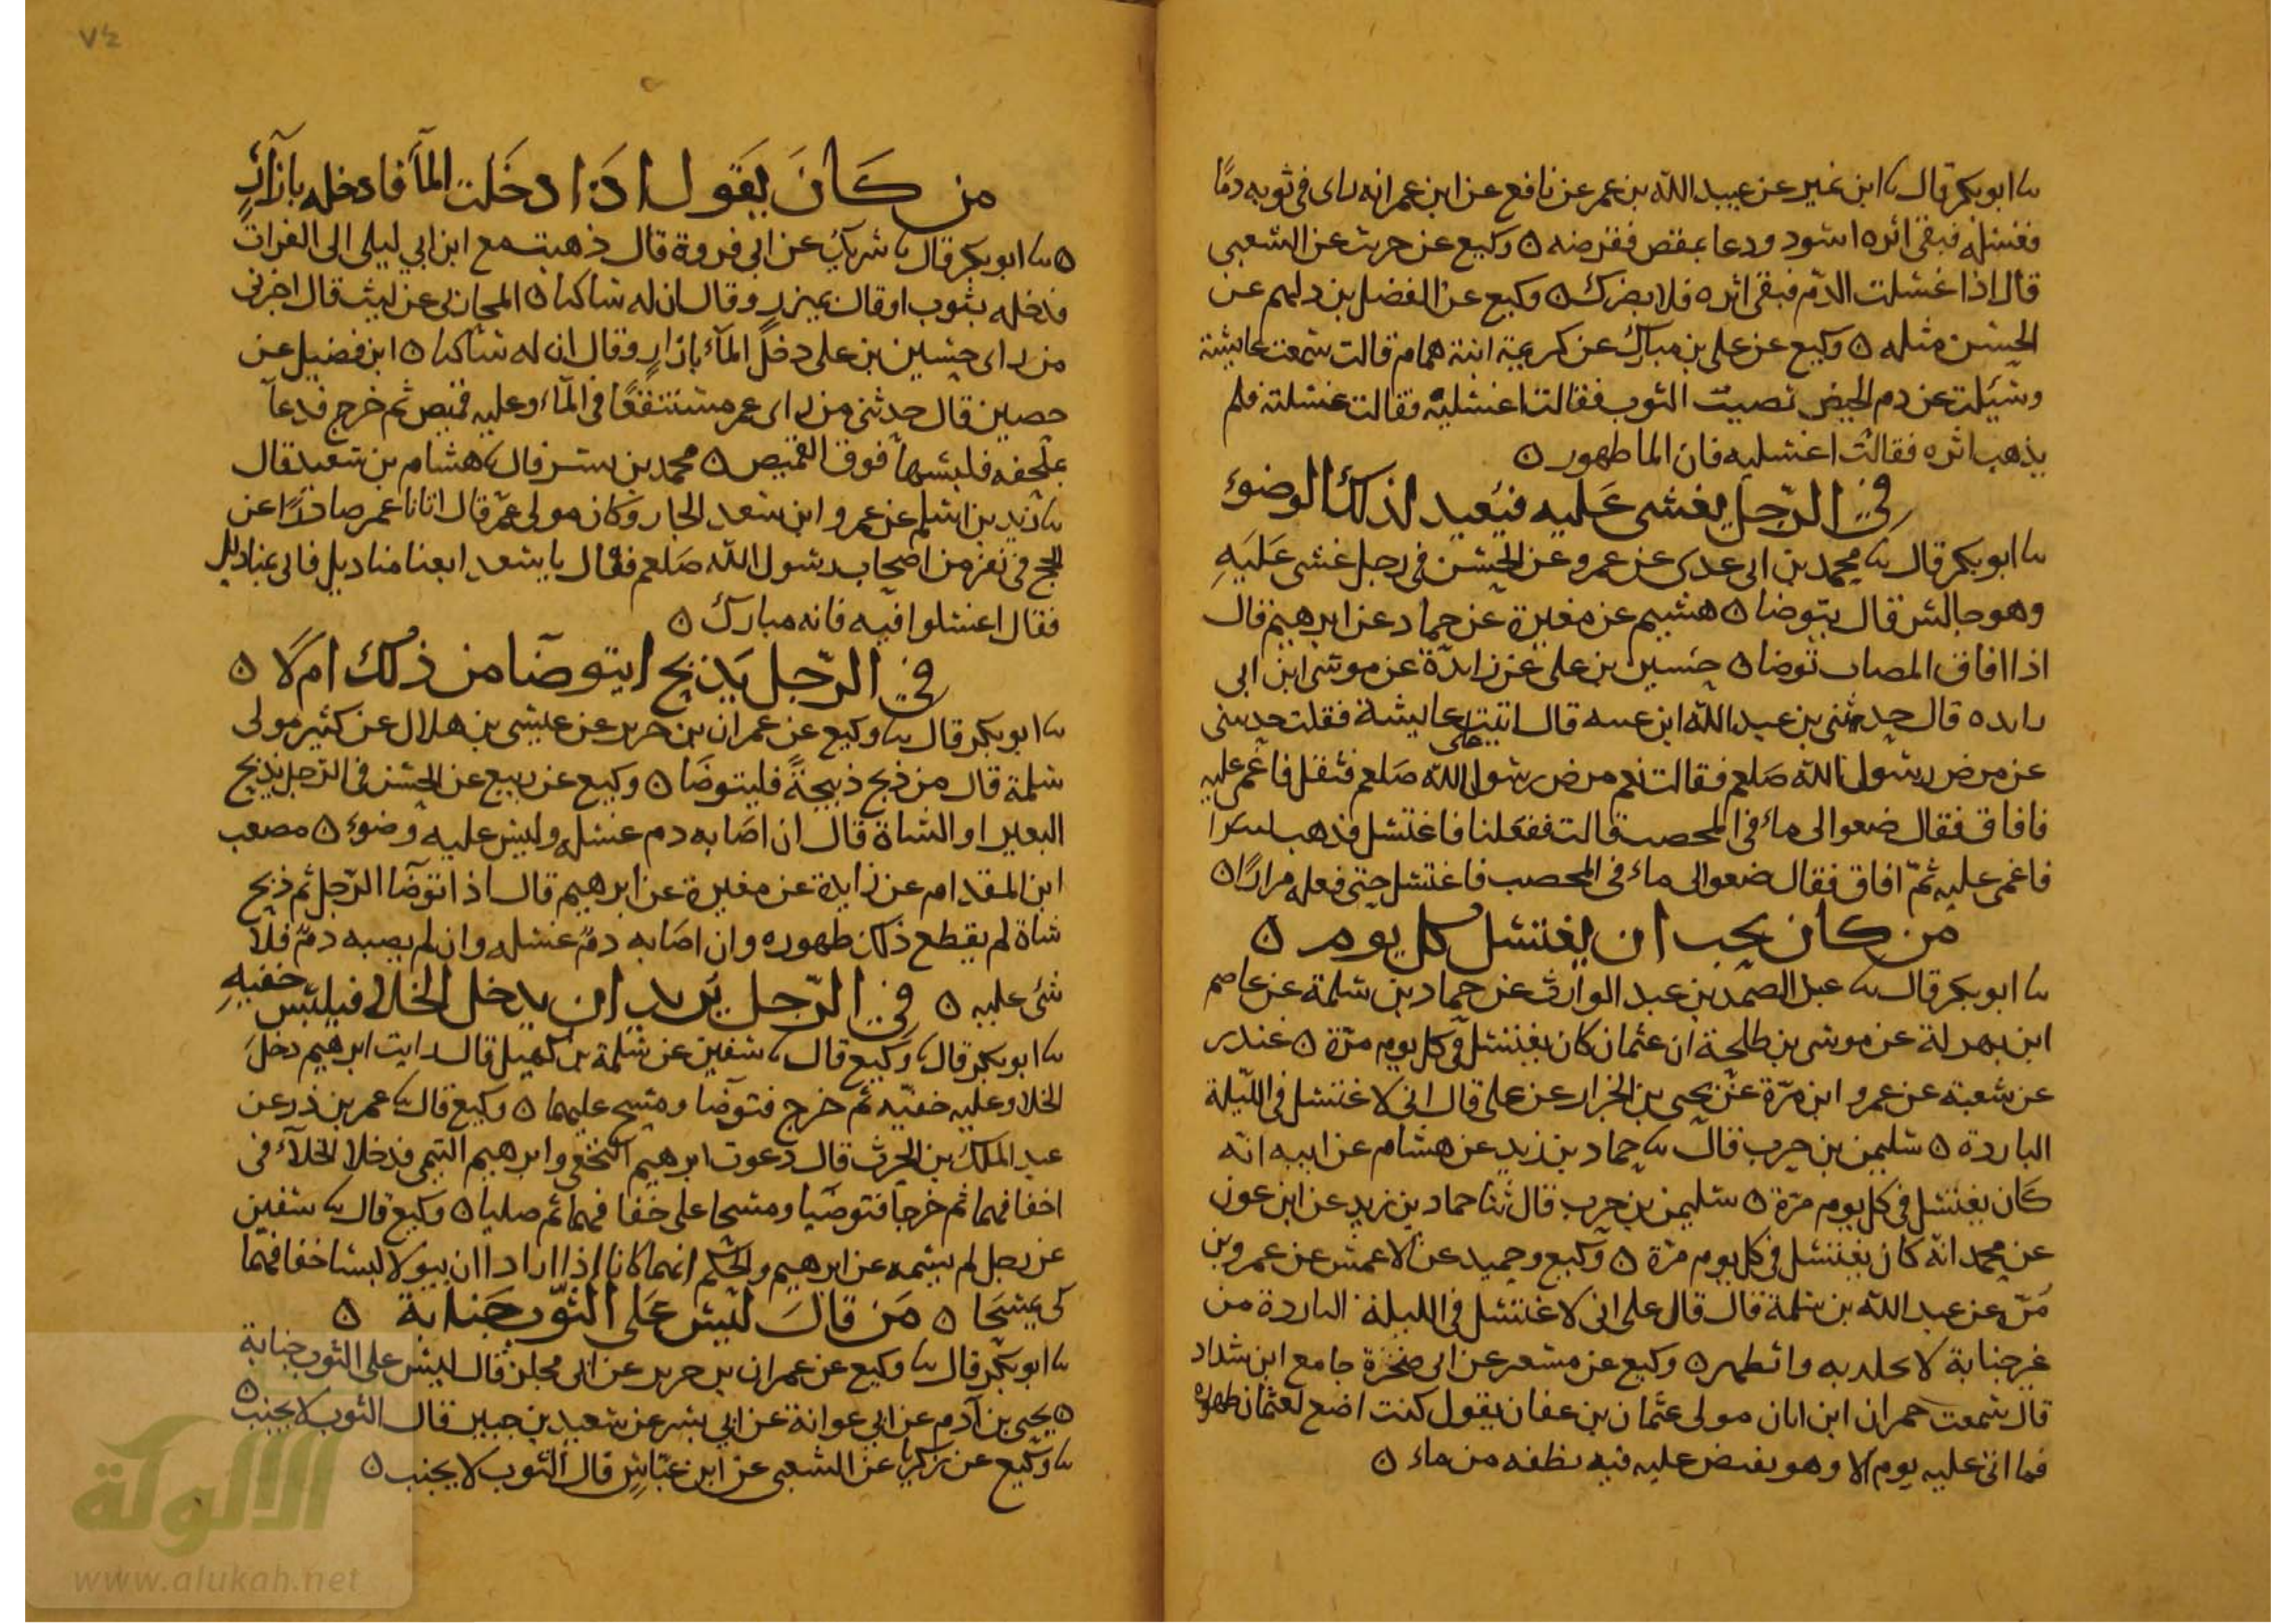 ثنا ابو بكر قال ثنا ابن نمير عن عبيد الله بن عمر عن نافع عن ابن عمر انه راى فى ثوبه دمًا
فغسله فبقى اثره اسود ودعا بمقص فقرضه ٥ وكيع عن حريث عن الشعبى
قال اذا غسلت الدّم فبقى اثره فلا يضرك ٥ وكيع عن الفضل بن دلهم عن
الحسن مثله ٥ وكيع عن على بن مبارك عن كريمة ابنة همام قالت سمعت عايشة
وسُئلت عن دم الحيض تصيب الثوب فقالت اغسليه فقالت غسلته فلم
يذهب اثره فقالت اغسليه فان الما طهور ٥
فى الرّجل يغشى عَليه فيُعيد لذلك الوضوء
ثنا ابو بكر قال ثنا محمد بن ابى عدى عن عمرو عن الحسن فى رجل غشى عَلَيهِ
وهو جالس قال يتوضا ٥ هشيم عن مغيرة عن حماد عن ابرهيم قال
اذا افاق المصاب توضا ٥ حسين بن على عن زايدَة عن موسى ابن ابى
رايده قال حدثنى بن عبد الله ابن عسه قال اتيت على عايشة فقلت حدثينى
عن مرض رسول الله صَلعم فقالت نعم مرض رسول الله صَلعم فثقل فاغمى عليه
فافاق فقال ضعوالى ماء فى المخصب قالت ففعَلنا فاغتسل فذهب
فاغمى عليه ثمّ افاق فقال ضعوالى ماء فى المخصب فاغتسل حتى فعله مرارًا ٥
من كان يحب ان يغتسل كل يوم ٥
ثنا ابو بكر قال ثنا عبد الصمد بن عبد الوارث عن حماد بن سلمة عن عاصم
ابن بهدلة عن موسى بن طلحة ان عثمان كان يغتسل فى كل يوم مرّة ٥ غندر
عن شعبة عن عمرو ابن مرّة عن يحيى بن الجزار عن على قال انى لاغتسل فى اللّيلة
الباردة ٥ سليمن بن حرب قال ثنا حماد بن زيد عن هشام عن ابيه انه
كَان يغتسل فى كل يوم مرّة ٥ سليمن بن حرب قال ثنا حماد بن زيد عن ابن عون
عن محمد انه كان يغتسل فى كل يوم مرّة ٥ وكيع وحميد عن الاعمش عن عمرو بن
مُرّ عن عبد الله بن سلمة قال قال على انى لاغتسل فى الليلة الباردة من
غير جنابة لا تجلد به واتطهر ٥ وكيع عن مسعر عن ابى صخرة جامع ابن شداد
قال سمعت حمران ابن ابان مولى عثمان بن عفان يقول كنت اضع لعثمان طهوره
فما اتى عليه يوم الا وهو يفيض عليه فيه نطفه من ماء ٥
٧٤
من كَانَ يَقول اذَا دخَلت المآ فادخله بازآرٍ
٥ ثنا ابو بكر قال ثنا شريك عن ابى فروة قال ذهبت مع ابن ابى ليلى الى الفرات
فدخله بثوب او قال بميزر وقال ان له ساكنا ٥ المحاربى عن ليث قال اخبرنى
من راى حسين بن على دخل المآء بازارٍ وقال ان له ساكنا ٥ ابن فضيل عن
حصين قال حدثنى من راى عمر مستنقعًا فى المآء وعليه قميص ثم خرج فدعآ
بملحفه فلبسها فوق القميص ٥ محمد بن بشر قال ثنا هشام بن سَعيد قال
ثنا زيد بن اسلم عن عمرو ابن سعد الجار وكان مولى عمر قال اتانا عمر صادرًا عن
الحج فى نفر من اصحاب رسول الله صَلعم فقال يا سعد ابعنا مناديل فاتى بمناديل
فقال اغتسلوا فيه فانه مبارك ٥
فى الرّجل يَذبح ايتوضآ من ذلك ام لا ٥
ثنا ابو بكر قال ثنا وكيع عن عمران بن حرير عن عيسى بن هلال عن كثير مولى
سلمة قال من ذبح ذبيحةً فليتوضا ٥ وكيع عن ربيع عن الحسن فى الرّجل يذبح
البعير او الشاة قال ان اصَابه دم غسله وليس عليه وضوء ٥ مصعب
ابن المقدام عن زايدة عن مغيرة عن ابرهيم قال اذا توضآ الرّجل ثم ذبح
شاة لم يقطع ذلك طهوره وان اصَابه دمٌ غسله وان لم يصبه دمٌ فلا
شئ عليه ٥ فى الرّجل يُريد ان يدخل الخلا فيلبس خفيهِ
ثنا ابو بكر قال ثنا وكيع قال ثنا سفين عن سلمة بن كهيل قال رايت ابرهيم دخلَ
الخلا وعليه خفيّه ثم خرج فتوضآ ومسح عليهما ٥ وكيع قال ثنا عمر بن ذر عن
عبد الملك بن الحرث قال دعوت ابرهيم النخعى وابرهيم التيمى فدخلا الخلآء فى
اخفافهما ثم خرجا فتوضَيا ومسحا على خفافهما ثم صليا ٥ وكيع قال ثنا سفين
عن رجل لم يسمه عن ابرهيم والحكم انهما كانا اذا ارادا ان يبولا لبسا خفافهما
كى يمسَحَا ٥ مَن قالَ ليسَ عَلى الثّوب جَنابة ٥
ثنا ابو بكر قال ثنا وكيع عن عمران بن حرير عن ابى مجلز قال ليس على الثوب جنابة
٥ يحيى بن آدم عن ابى عوانة عن ابى بشر عن سعيد بن جبير قال الثوب لا يجنب ٥
ثنا وكيع عن زكريا عن الشعبى عن ابن عبّاسٍ قال الثوب لا يجنب ٥
الألوكة
www.alukah.net